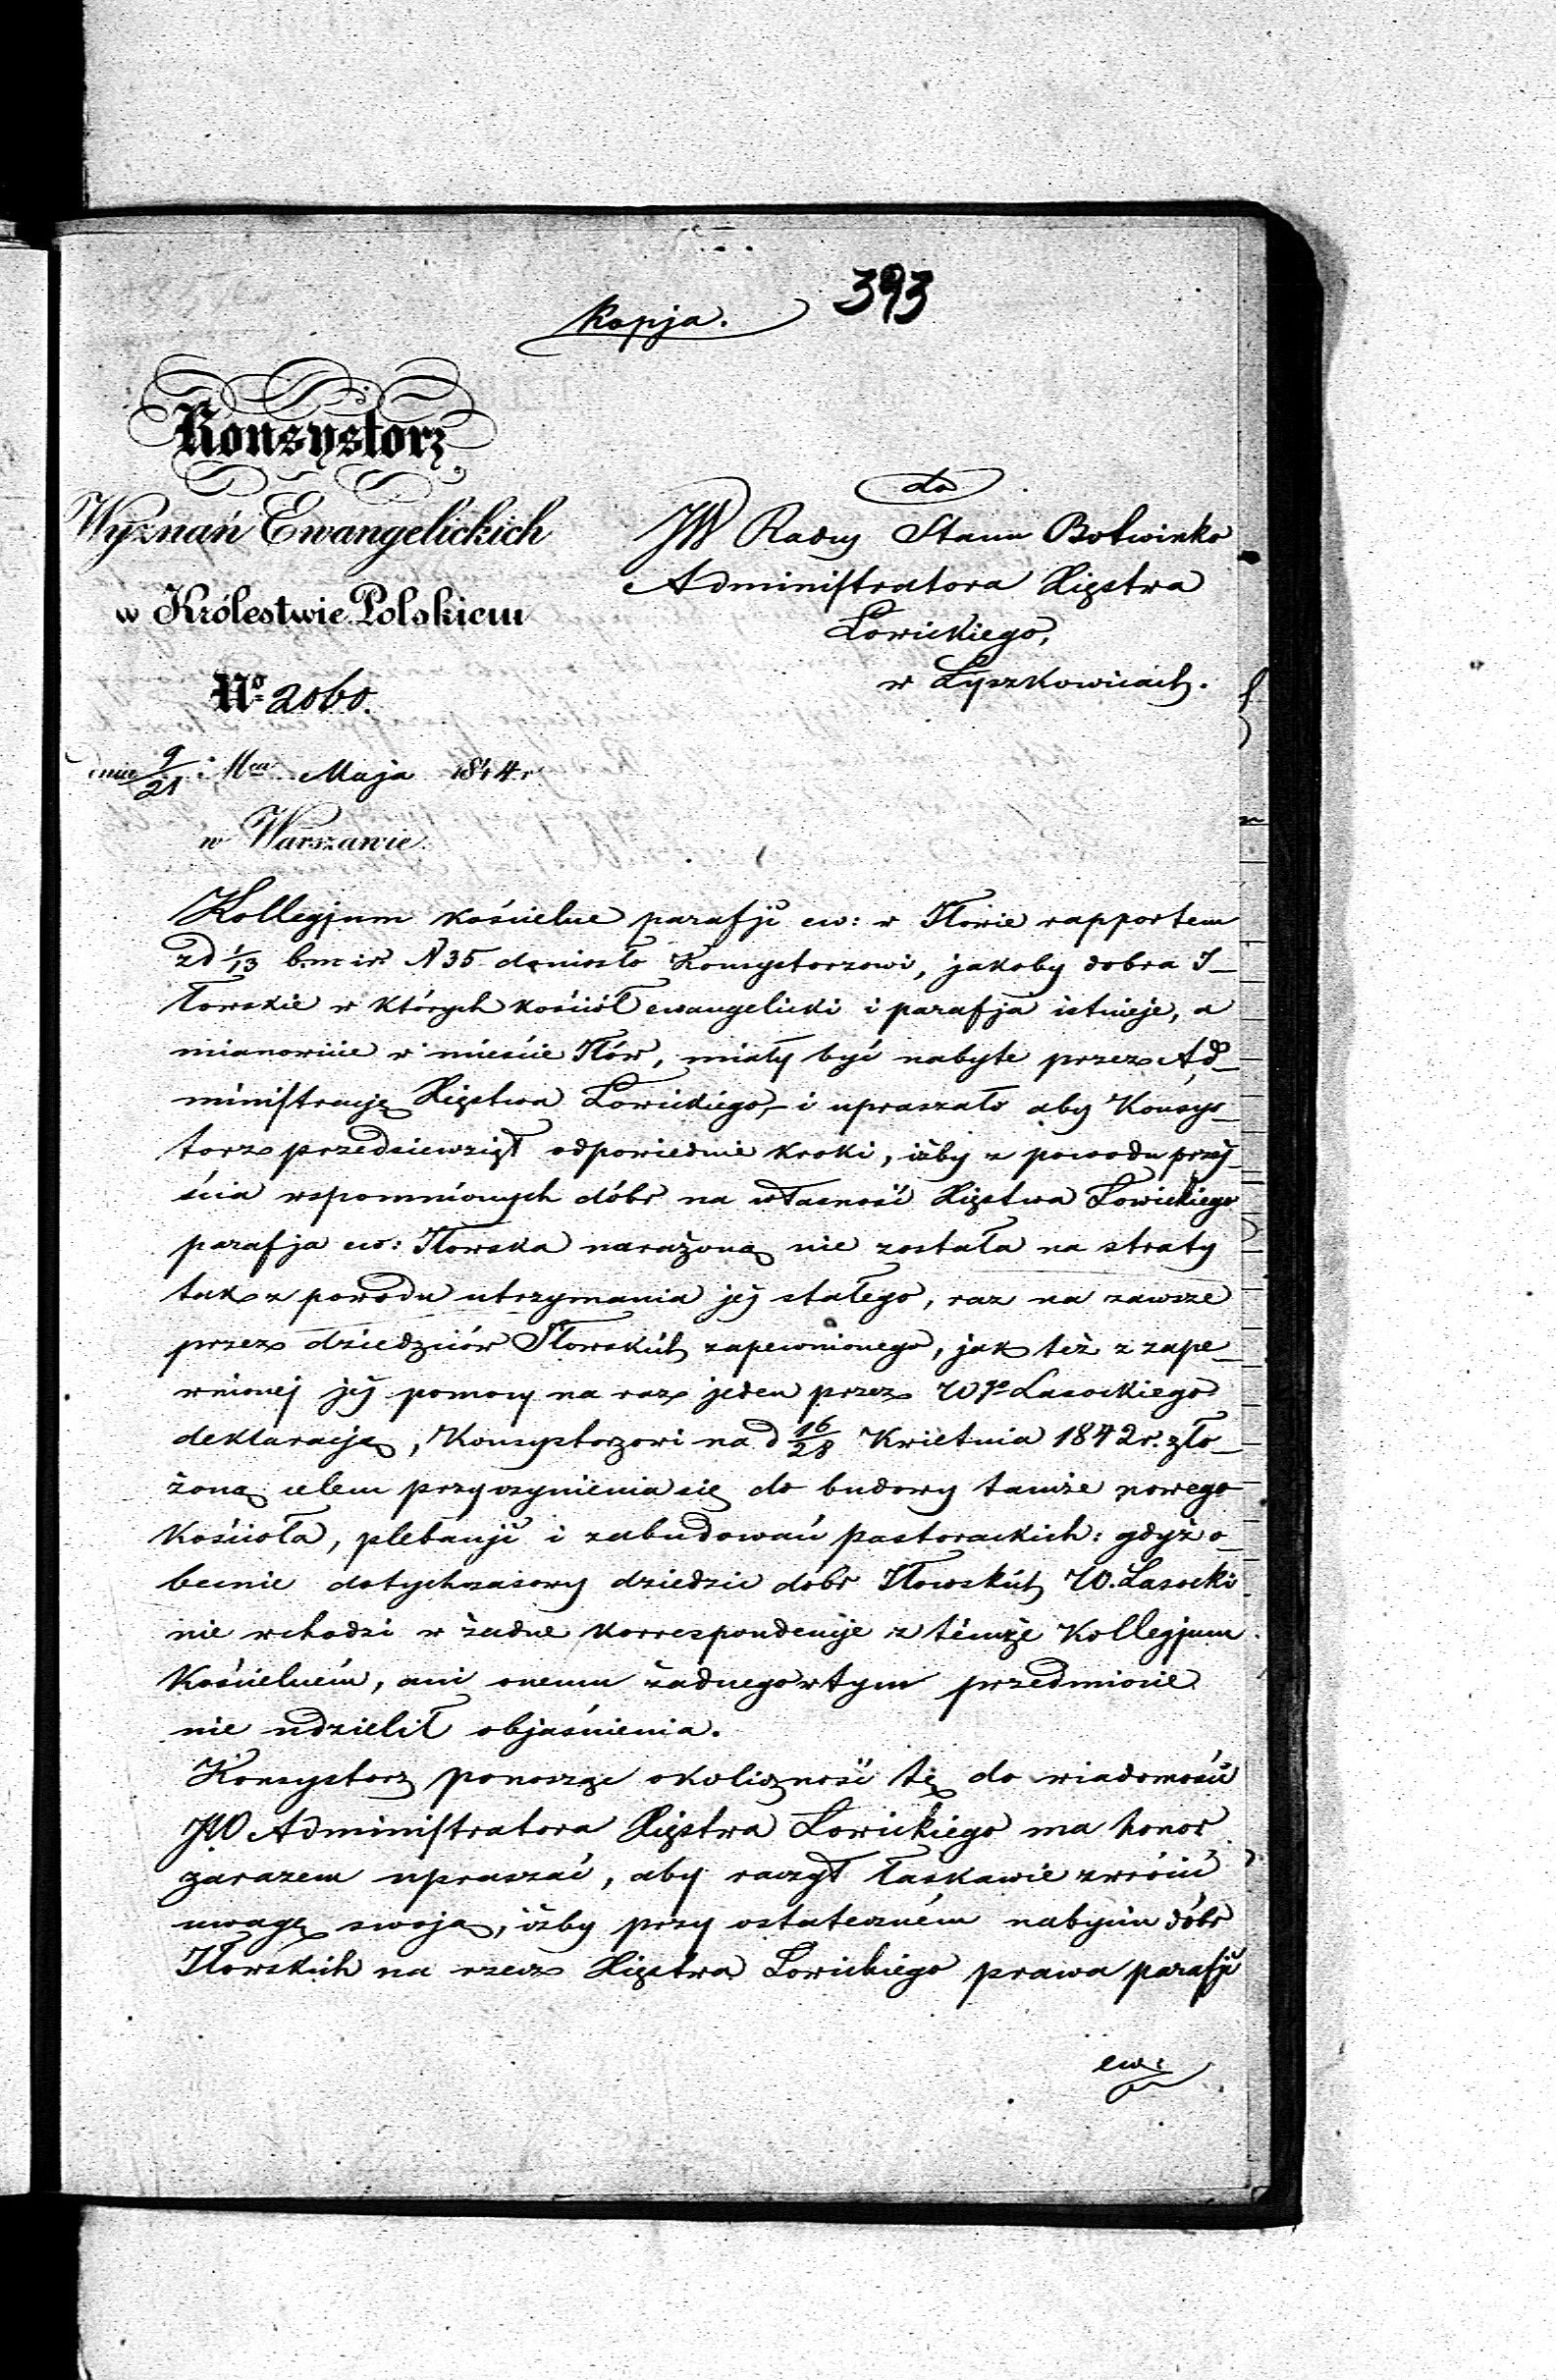 393
Kopja.
Konsystorz
Wyznań Ewangelickich
w Królestwie Polskiem
Nº 2060.
dnia 9/21 Mca Maja 1844 r
w Warszawie.
do
JW Radcy Stanu Botwinko
Administratora Xięstwa
Łowickiego,
w Łyszkowicach.
Kollegjum kościelne parafji ew: w Iłowie rapportem
z d 1/13 b. m i r. N 35 doniosło Konsystorzowi, jakoby dobra I-
łowskie w których kościół ewangelicki i parafja istnieje, a
mianowicie w mieście Iłów, miały być nabyte przez Ad-
ministracją Xięstwa Łowickiego,- i upraszało aby Konsys-
torz przedsiewziął odpowiednie kroki, iżby z powodu przej-
ścia wspomnionych dóbr na własność Xięstwa Łowickiego
parafja ew: Iłowska narażoną nie została na straty
tak z powodu utrzymania jej stałego, raz na zawsze
przez dziedziców Iłowskich zapewnionego, jak też z zape-
wnionej jej pomocy na raz jeden przez Wgo Lasockiego
deklaracją, Konsystorzowi na d 16/28 Kwietnia 1842 r. zło-
żoną celem przyczynienia się do budowy tamże nowego
Kościoła, plebanji i zabudowań pastorackich: gdyż o-
becnie dotychczasowy dziedzic dóbr Iłowskich W. Lasocki
nie wchodzi w żadne korrespondencje z témże Kollegjum
Kościelném, ani onemu żadnego w tym przedmiocie
nie udzielił objaśnienia.
Konsystorz ponosząc okoliczność tę do wiadomości
JW Administratora Xięstwa Łowickiego ma honor
zarazem upraszać, aby raczył łaskawie zwrócić
uwagę swoją, iżby przy ostateczném nabyciu dóbr
Iłowskich na rzecz Xięstwa Łowickiego prawa parafji
ew: